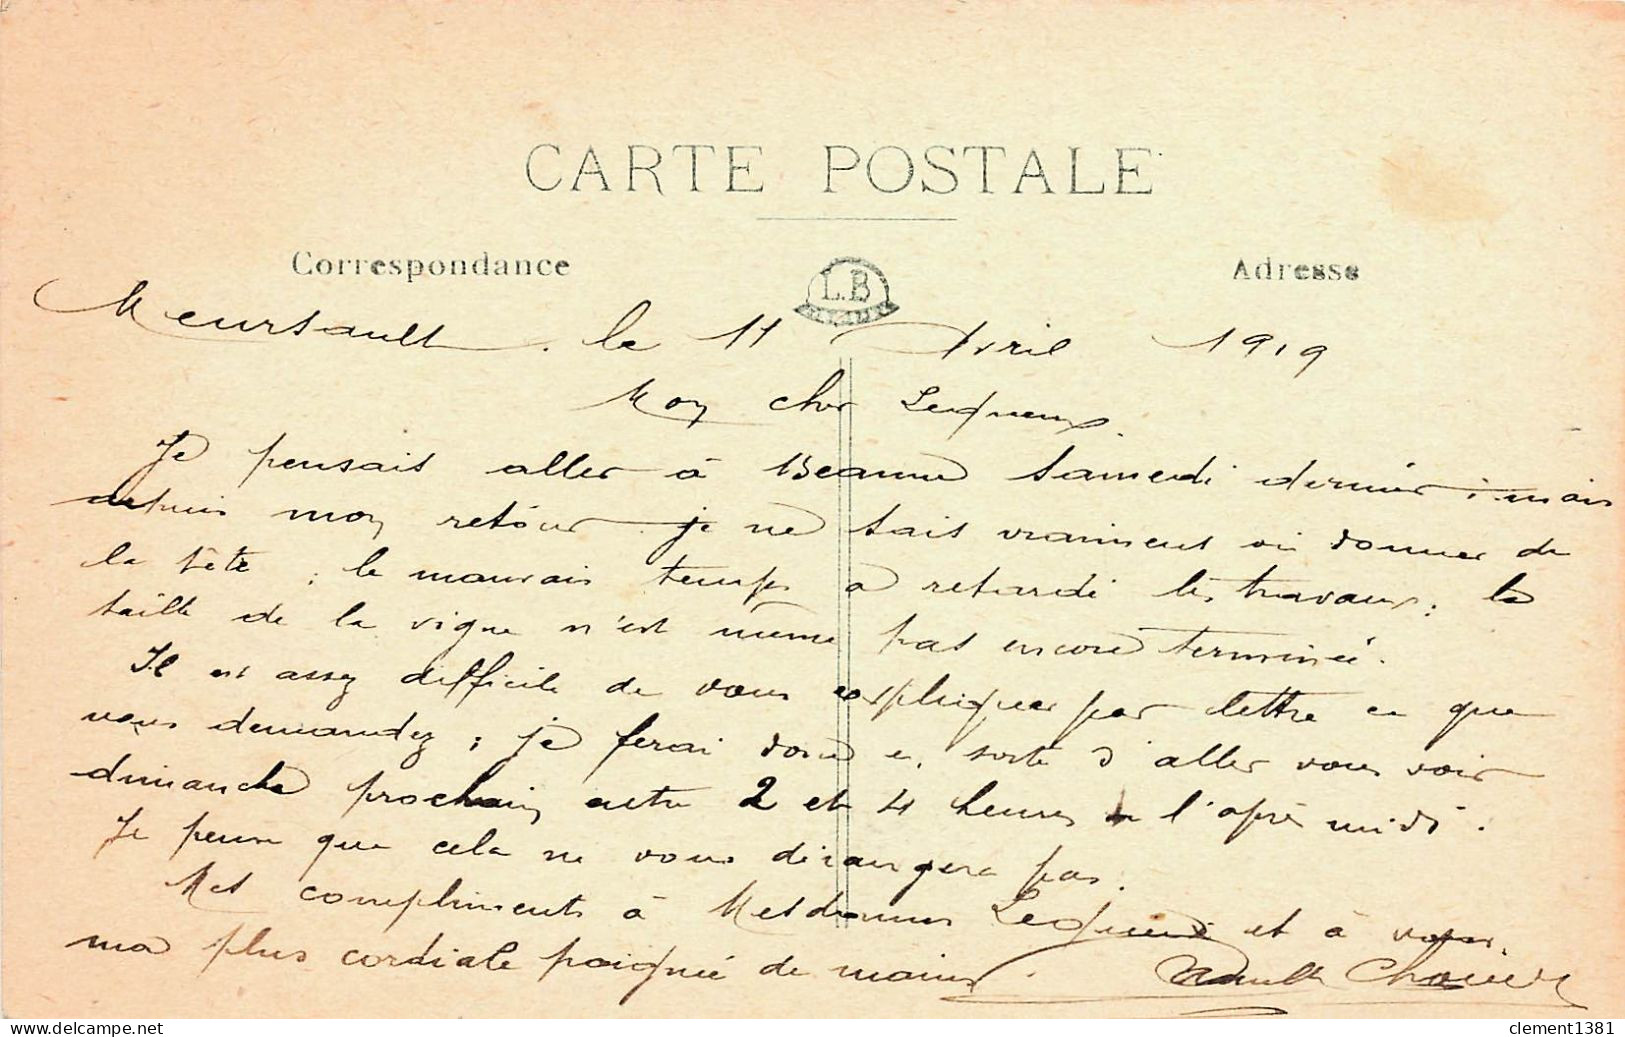 CARTE POSTALE
Correspondance
L.B
Adresse
Meursault. le 11 Avril 1919
Mon cher Lequeux.
Je pensais aller à Beaune samedi dernier ; mais
depuis mon retour je ne sais vraiment où donner de
la tête ; le mauvais temps a retardé les travaux ; la
taille de la vigne n'est même pas encore terminée.
Il est assez difficile de vous expliquer par lettre ce que
vous demandez ; je ferai donc en sorte d'aller vous voir
dimanche prochain entre 2 et 4 heures de l'après midi.
Je pense que cela ne vous dérangera pas.
Mes compliments à Mesdames Lequeux et à vous,
ma plus cordiale poignée de mains.
clement1381